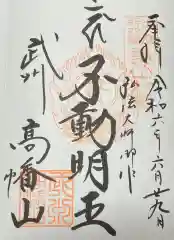 奉拝
令和六年六月廿九日
弘法大師御作
不動明王
武州
高幡山